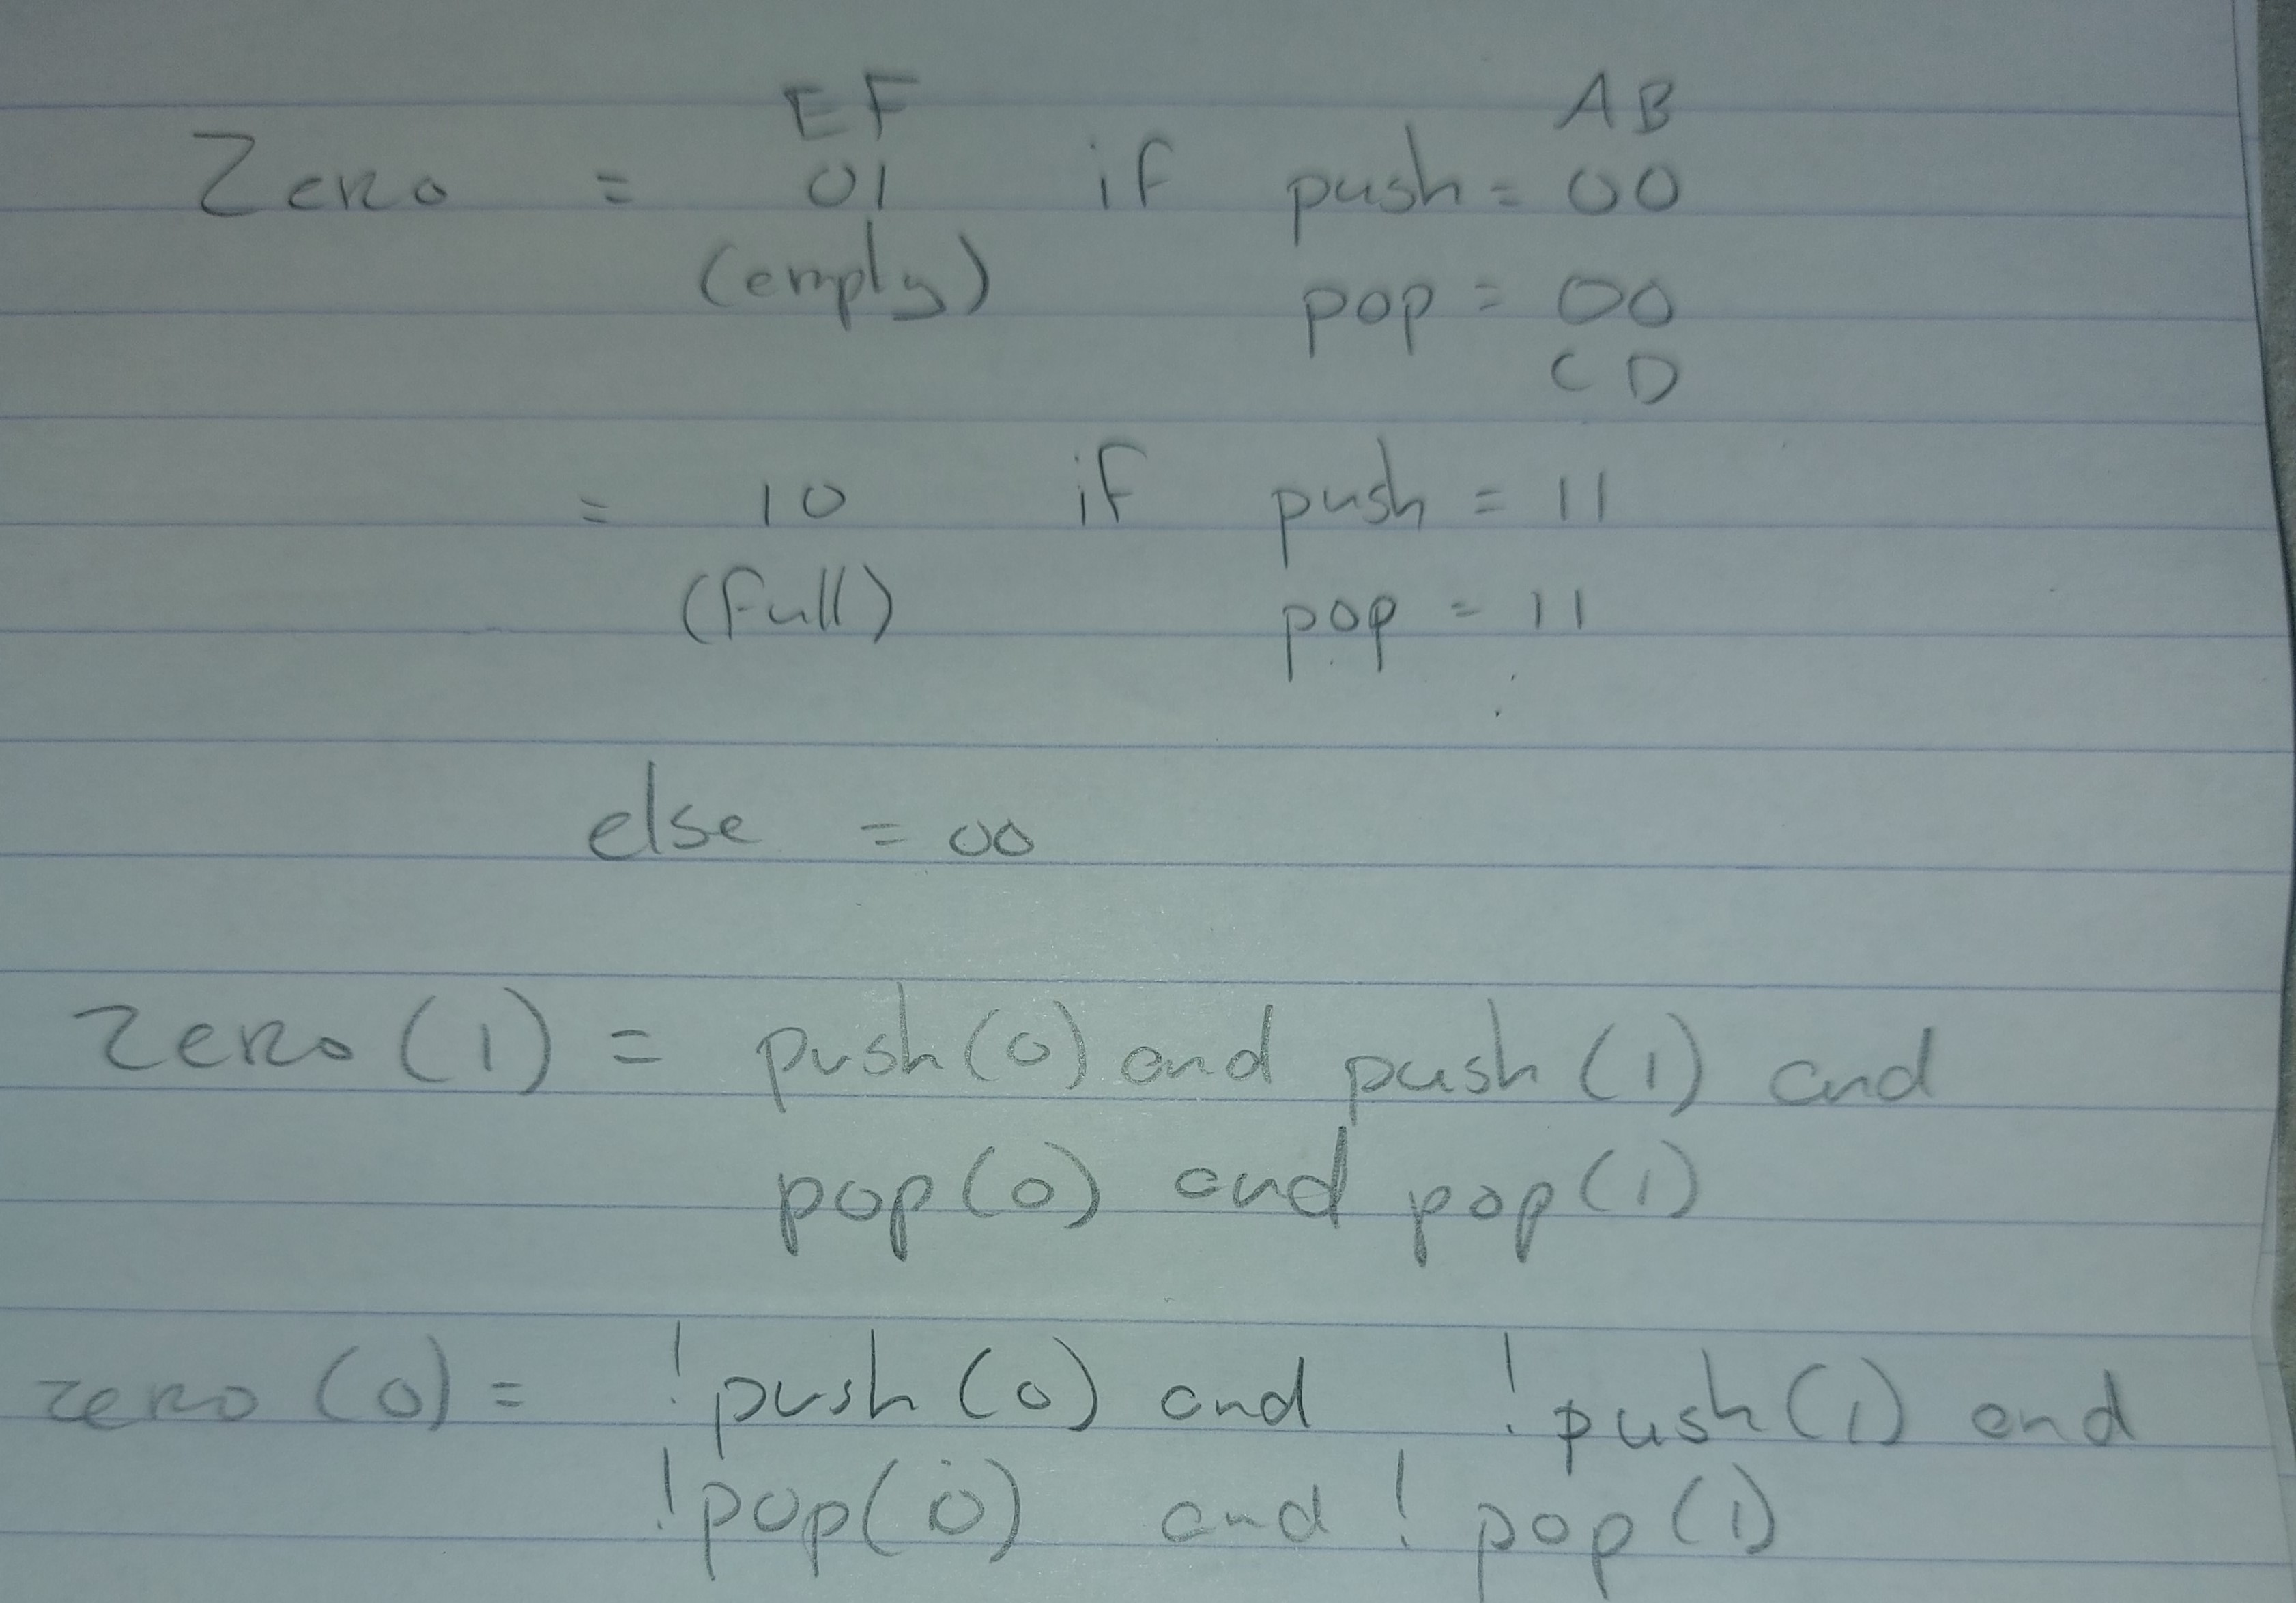 EF AB
Zero = 01 if push = 00
(empty) pop = 00
CD
= 10 if push = 11
(full) pop = 11
else = 00
Zero (1) = push(0) and push (1) and
pop (0) and pop (1)
zero (0) = !push (0) and !push (1) and
!pop (0) and ! pop (1)